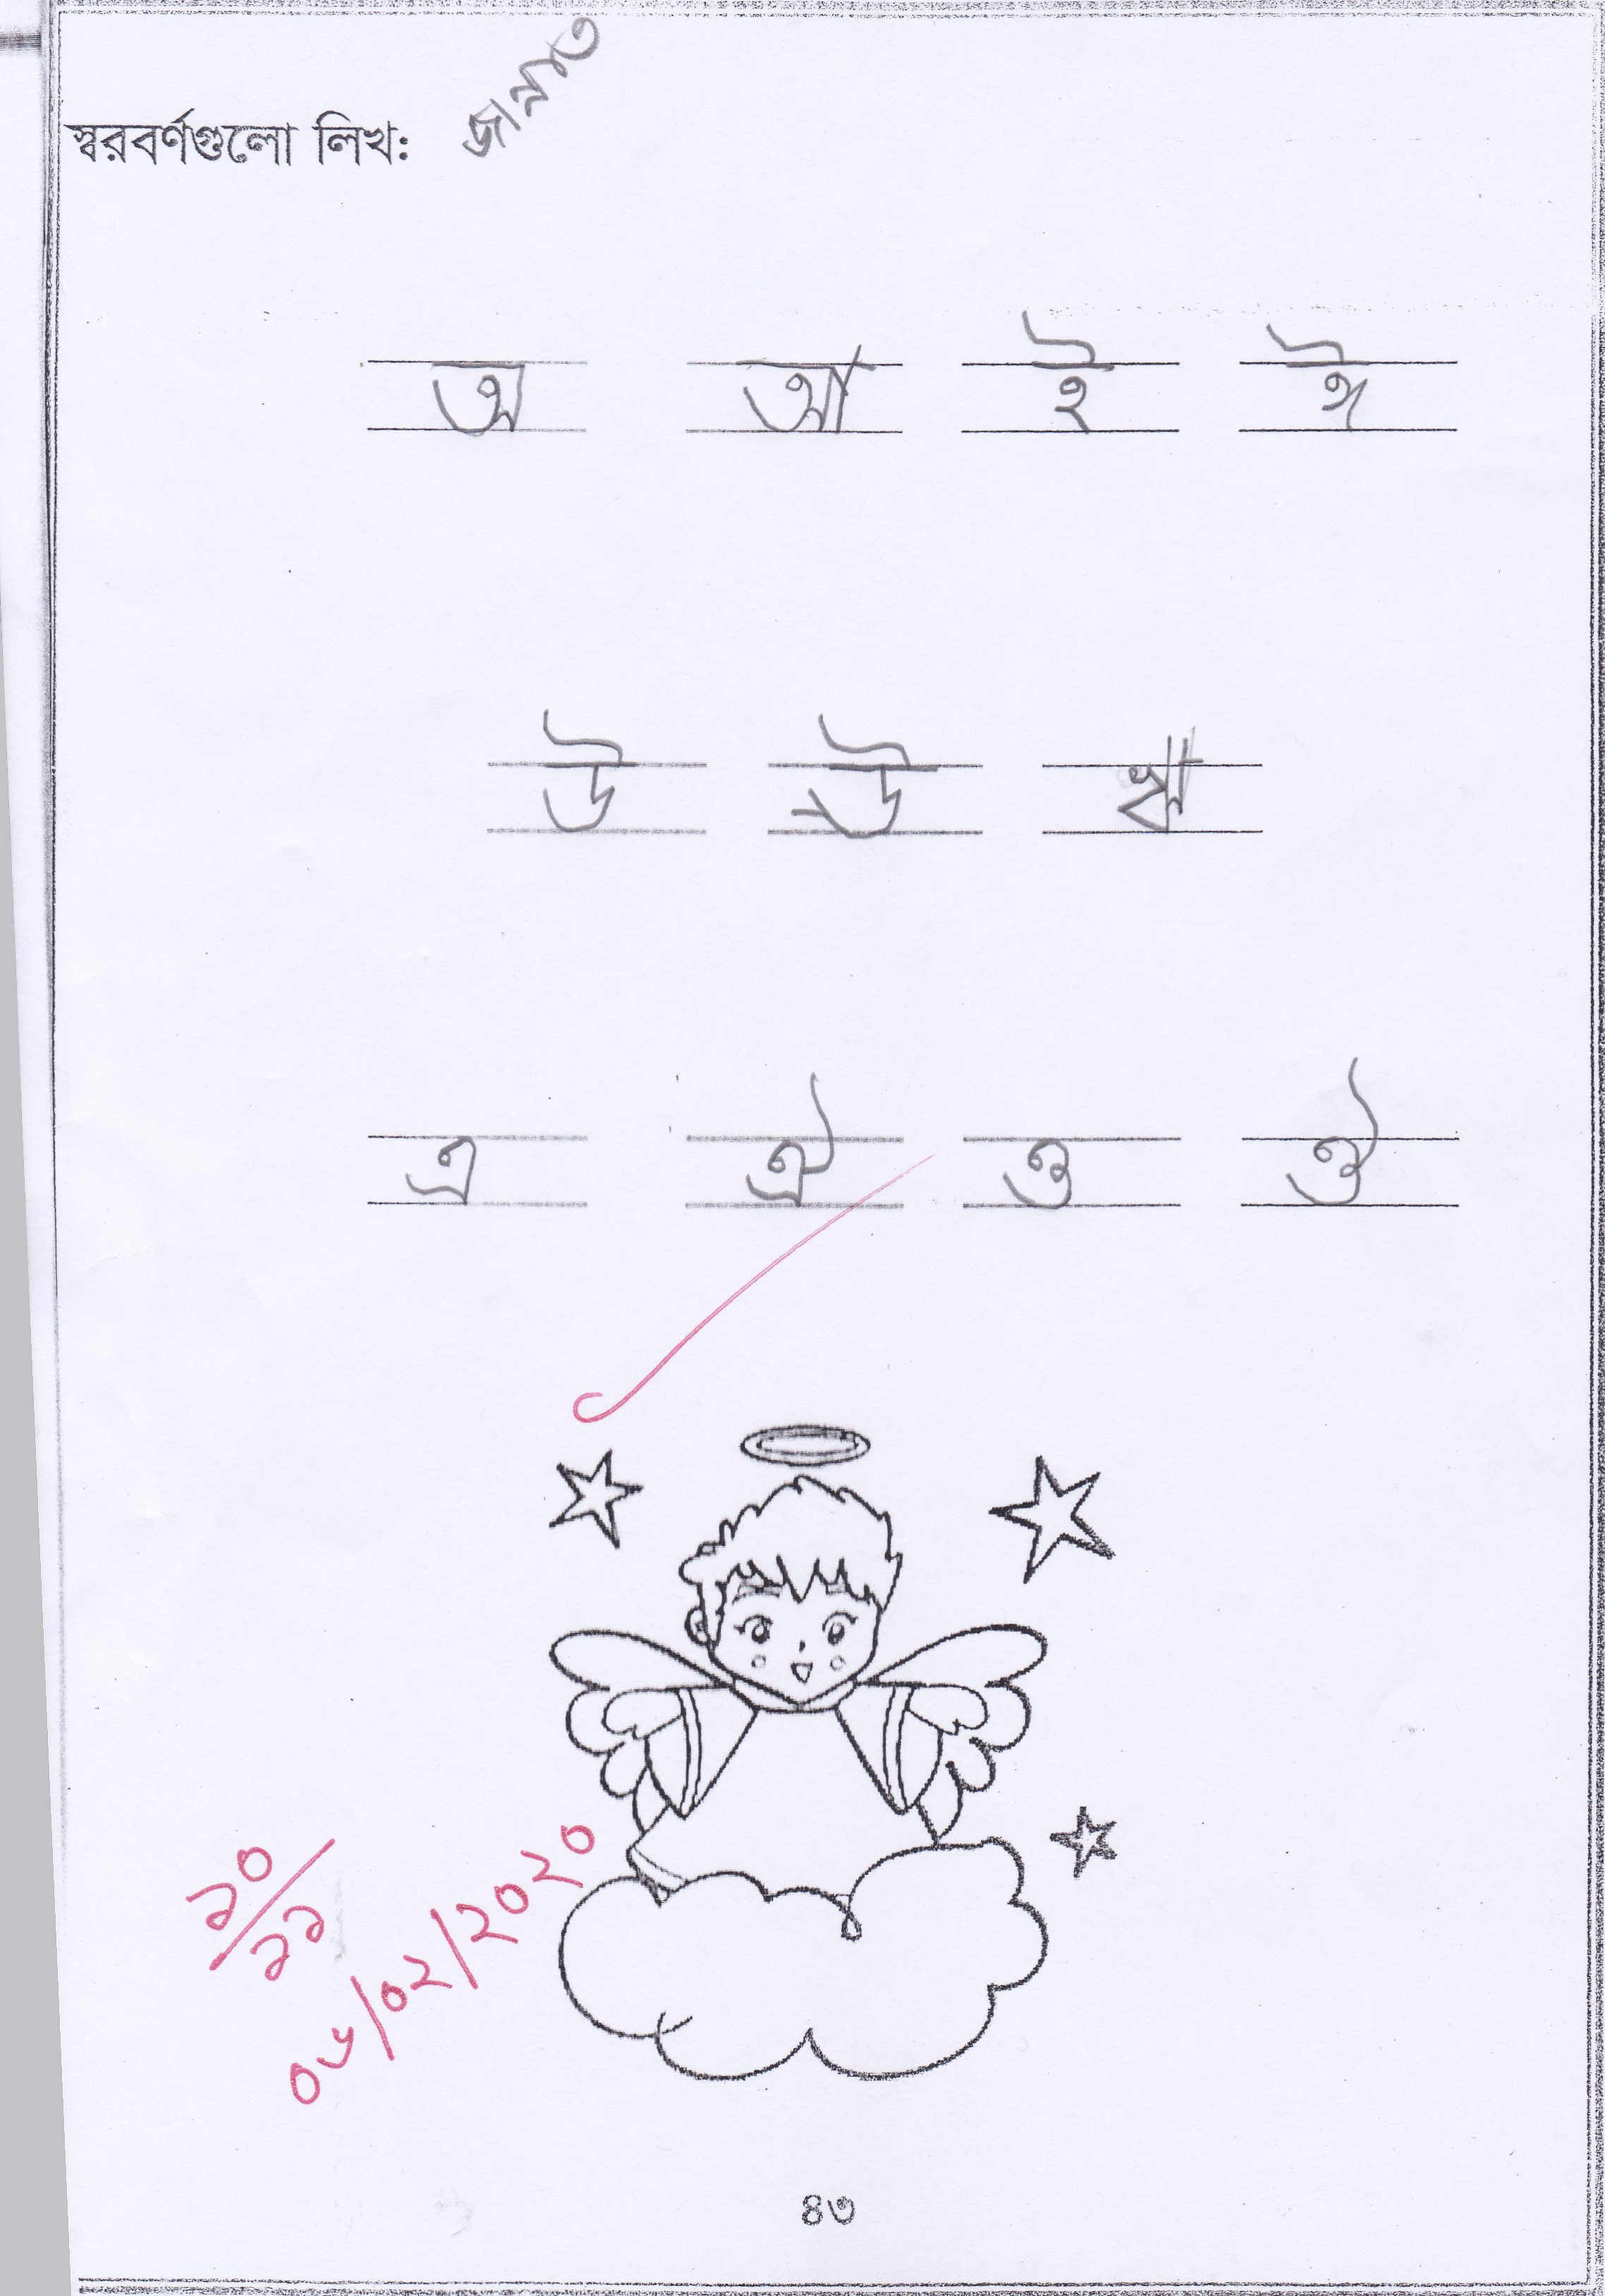 স্বরবর্ণগুলো লিখ: জান্নাত
অ আ ই ঈ
উ ঊ ঋ
এ ঐ ও ঔ
১০/১১
০৮/০২/২০২০
৪৩